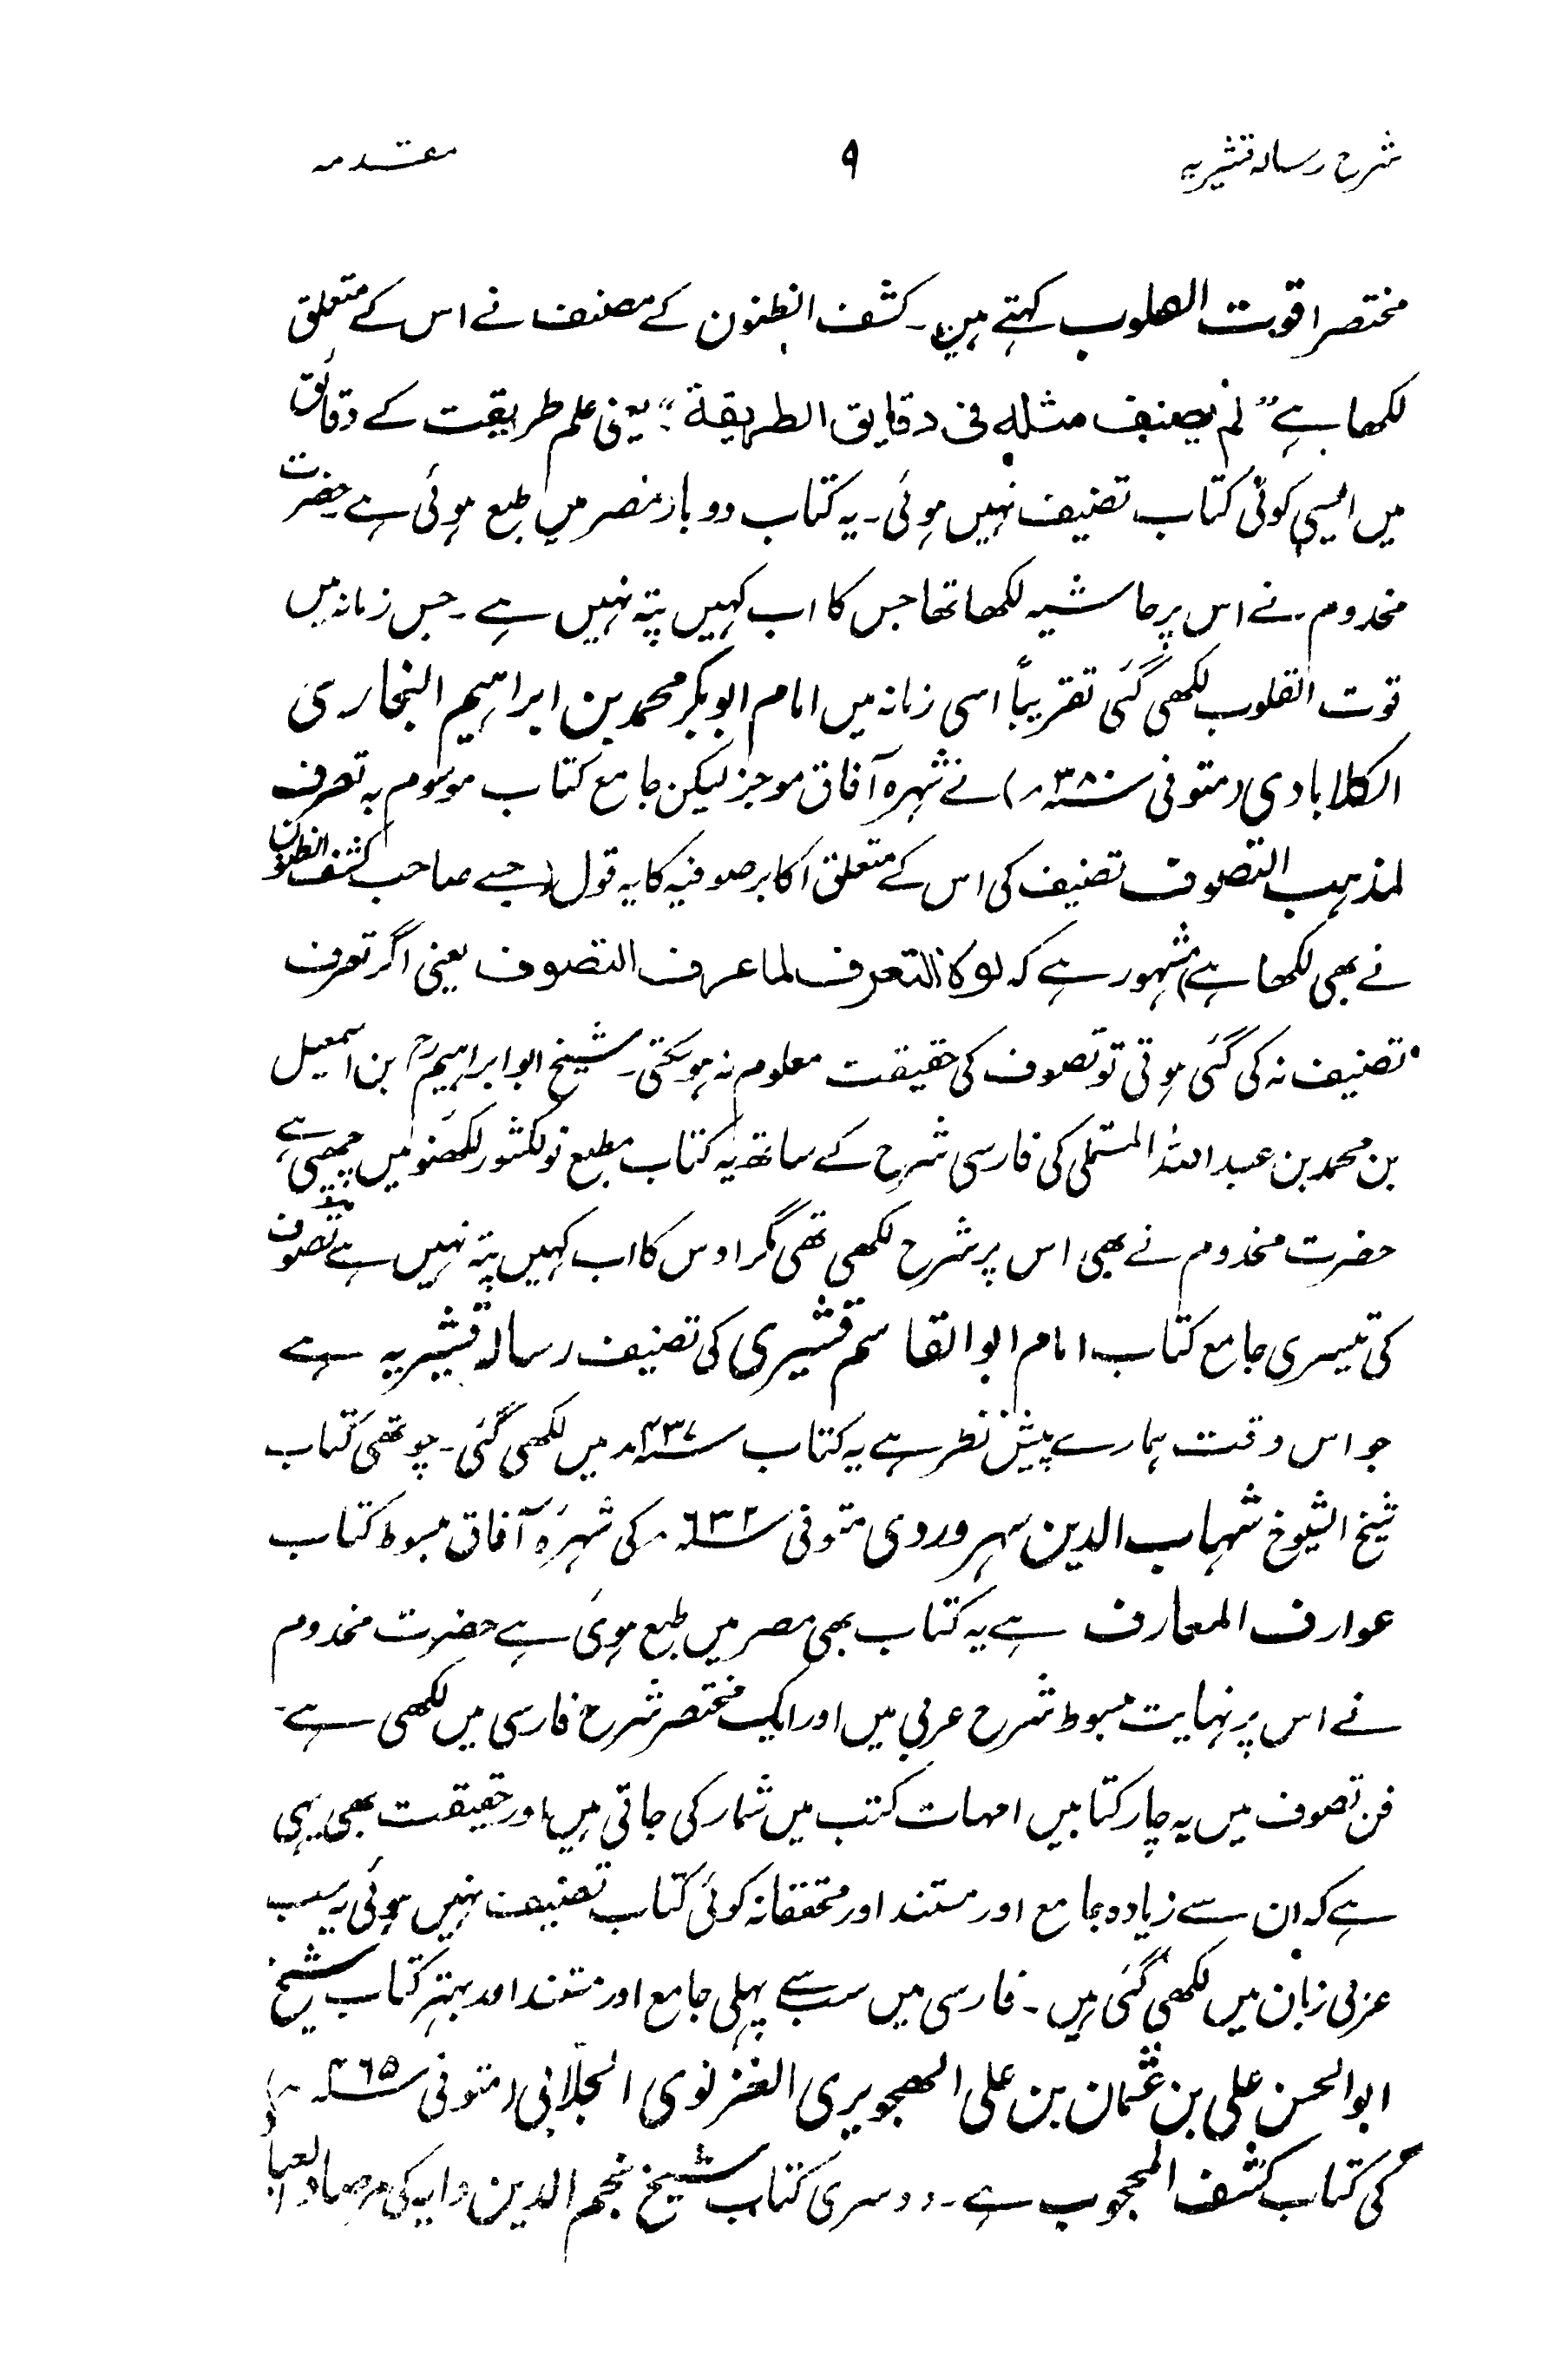 شرح رسالہ قشیریہ ۹ مقدمہ
مختصرا قوت القلوب کہتے ہیں۔ کشف الظنون کے مصنف نے اس کے متعلق
لکھا ہے "لم یصنف مثله فی دقایق الطریقة" یعنی علم طریقت کے دقائق
میں ایسی کوئی کتاب تصنیف نہیں ہوئی۔ یہ کتاب دو بار مصر میں طبع ہوئی ہے حضرت
مخدوم نے اس پر حاشیہ لکھا تھا جس کا اب کہیں پتہ نہیں ہے۔ جس زمانہ میں
قوت القلوب لکھی گئی تقریباً اسی زمانہ میں امام ابو بکر محمد بن ابراہیم البخاری
الکلابادی (متوفی سنہ ۳۸۰ھ) نے شہرہ آفاق موجز لیکن جامع کتاب موسوم بہ تعرف
لمذہب التصوف تصنیف کی اس کے متعلق اکابر صوفیہ کا یہ قول (جسے صاحب کشف الظنون
نے بھی لکھا ہے) مشہور ہے کہ لو کا التعرف لما عرف التصوف یعنی اگر تعرف
تصنیف نہ کی گئی ہوتی تو تصوف کی حقیقت معلوم نہ ہوسکتی۔ شیخ ابو ابراہیمؒ بن اسمعیل
بن محمد بن عبد اللہ المستملی کی فارسی شرح کے ساتھ یہ کتاب مطبع نولکشور لکھنؤ میں چھپی ہے
حضرت مخدوم نے بھی اس پر شرح لکھی تھی مگر اوس کا اب کہیں پتہ نہیں ہے تصوف
کی تیسری جامع کتاب امام ابو القاسم قشیری کی تصنیف رسالہ قشیریہ ہے
جو اس وقت ہمارے پیش نظر ہے یہ کتاب سنہ ۴۳۷ھ میں لکھی گئی۔ چوتھی کتاب
شیخ الشیوخ شہاب الدین سہروردی متوفی سنہ ۶۳۲ھ کی شہرۂ آفاق مبسوط کتاب
عوارف المعارف ہے یہ کتاب بھی مصر میں طبع ہوئی ہے حضرت مخدوم
نے اس پر نہایت مبسوط شرح عربی میں اور ایک مختصر شرح فارسی میں لکھی ہے۔
فن تصوف میں یہ چار کتابیں امہات کتب میں شمار کی جاتی ہیں اور حقیقت بھی یہی
ہے کہ ان سے زیادہ جامع اور مستند اور محققانہ کوئی کتاب تصنیف نہیں ہوئی یہ سب
عربی زبان میں لکھی گئی ہیں۔ فارسی میں سب سے پہلی جامع اور مستند اور بہتر کتاب شیخ
ابو الحسن علی بن عثمان بن علی الھجویری الغزنوی الجلّابی (متوفی سنہ ۴۶۵ھ)
کی کتاب کشف المحجوب ہے۔ دوسری کتاب شیخ نجم الدین دایہ کی مرصاد العباد